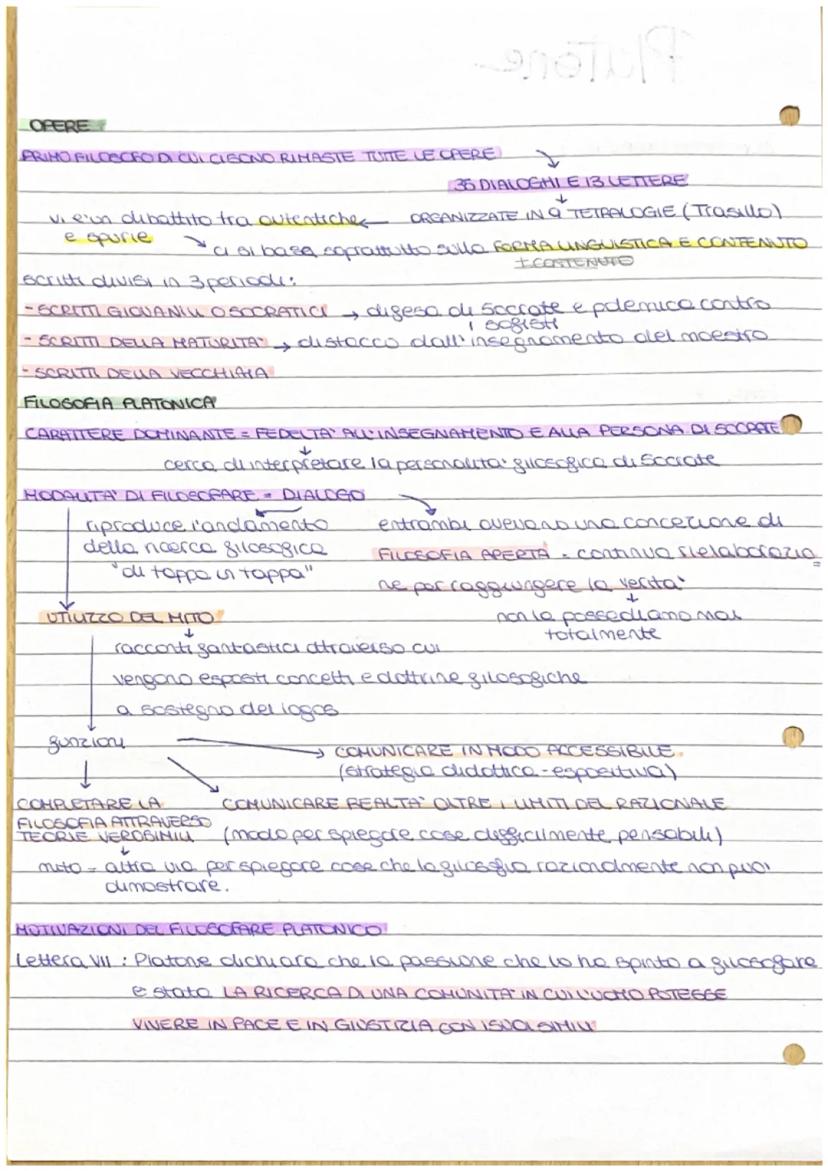 Platone
OPERE
PRIMO FILOSOFO DI CUI CI SONO RIMASTE TUTTE LE OPERE
35 DIALOGHI E 13 LETTERE
vi è un dibattito tra autentiche ← ORGANIZZATE IN 9 TETRALOGIE (Trasillo)
e spurie → ci si basa soprattutto sulla FORMA LINGUISTICA E CONTENUTO
scritti divisi in 3 periodi:
- SCRITTI GIOVANILI O SOCRATICI → difesa di Socrate e polemica contro
i sofisti
- SCRITTI DELLA MATURITA' → distacco dall'insegnamento del maestro
- SCRITTI DELLA VECCHIAIA
FILOSOFIA PLATONICA
CARATTERE DOMINANTE = FEDELTA' ALL'INSEGNAMENTO E ALLA PERSONA DI SOCRATE
cerca di interpretare la personalita' filosofica di Socrate
MODALITA' DI FILOSOFARE = DIALOGO
riproduce l'andamento entrambi avevano una concezione di
della ricerca filosofica FILOSOFIA APERTA = continua rielaborazio
"di tappa in tappa" ne per raggiungere la verita'
UTILIZZO DEL MITO non la possediamo mai
totalmente
racconti fantastici attraverso cui
vengono esposti concetti e dottrine filosofiche
a sostegno del logos
funzioni → COMUNICARE IN MODO ACCESSIBILE
(strategia didattica-espositiva)
COMPLETARE LA COMUNICARE REALTA' OLTRE I LIMITI DEL RAZIONALE
FILOSOFIA ATTRAVERSO
TEORIE VEROSIMILI (modo per spiegare cose difficilmente pensabili)
mito = altra via per spiegare cose che la filosofia razionalmente non puo'
dimostrare.
MOTIVAZIONI DEL FILOSOFARE PLATONICO
Lettera VII : Platone dichiara che la passione che lo ha spinto a filosofare
e' stata LA RICERCA DI UNA COMUNITA' IN CUI L'UOMO POTESSE
VIVERE IN PACE E IN GIUSTIZIA CON I SUOI SIMILI